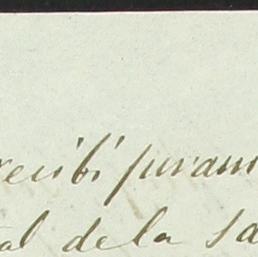 recibi juram
al de la sa